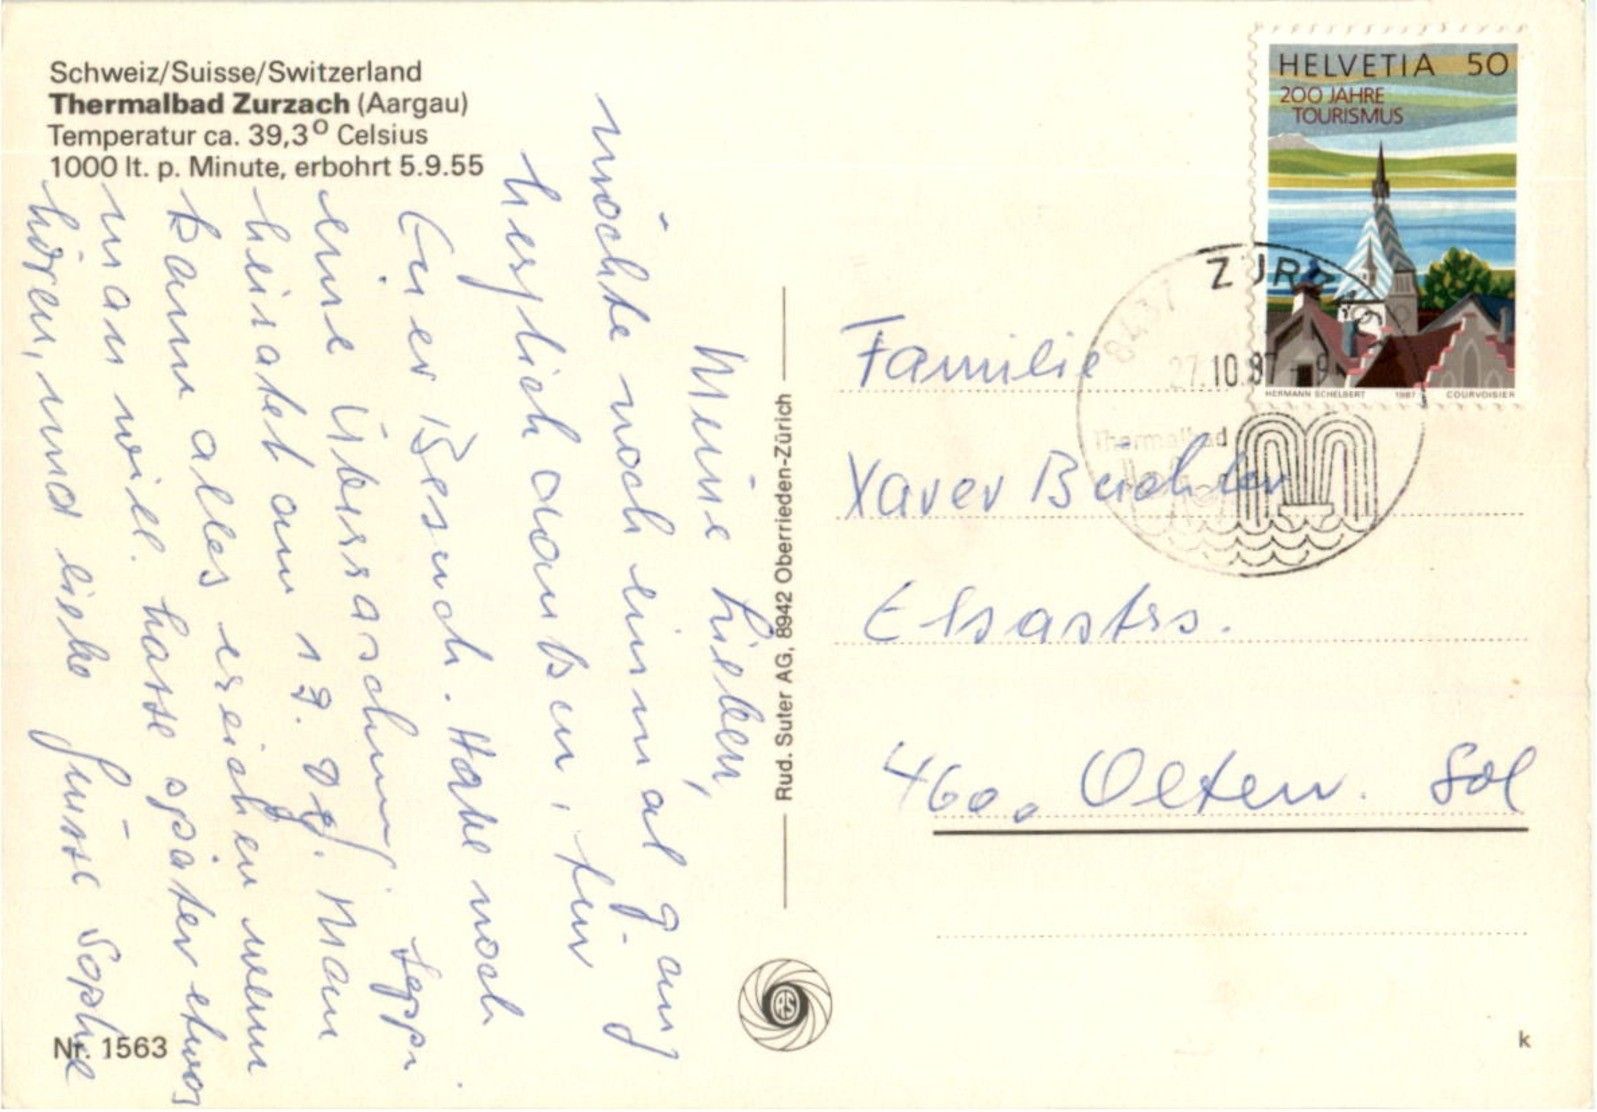 Schweiz/Suisse/Switzerland
Thermalbad Zurzach (Aargau)
Temperatur ca. 39,3⁰ Celsius
1000 lt. p. Minute, erbohrt 5.9.55
Meine Lieben,
möchte noch einmal ganz
herzlich danken, für
Euer Besuch. Habe noch
eine Überraschung, Seppi
heiratet am
kann alles erreichen wenn
man will. lasse später etwas
hören, und liebe Grüsse Sophie
Nr. 1563
Rud. Suter AG, 8942 Oberrieden-Zürich
RS
HELVETIA 50
200 JAHRE
TOURISMUS
HERMANN SCHELBERT 1987 COURVOISIER
8437 ZURZACH
27.10.87 - 9
Thermalbad
Familie
Xaver
Elsastrs.
4600 Olten. Sol
k